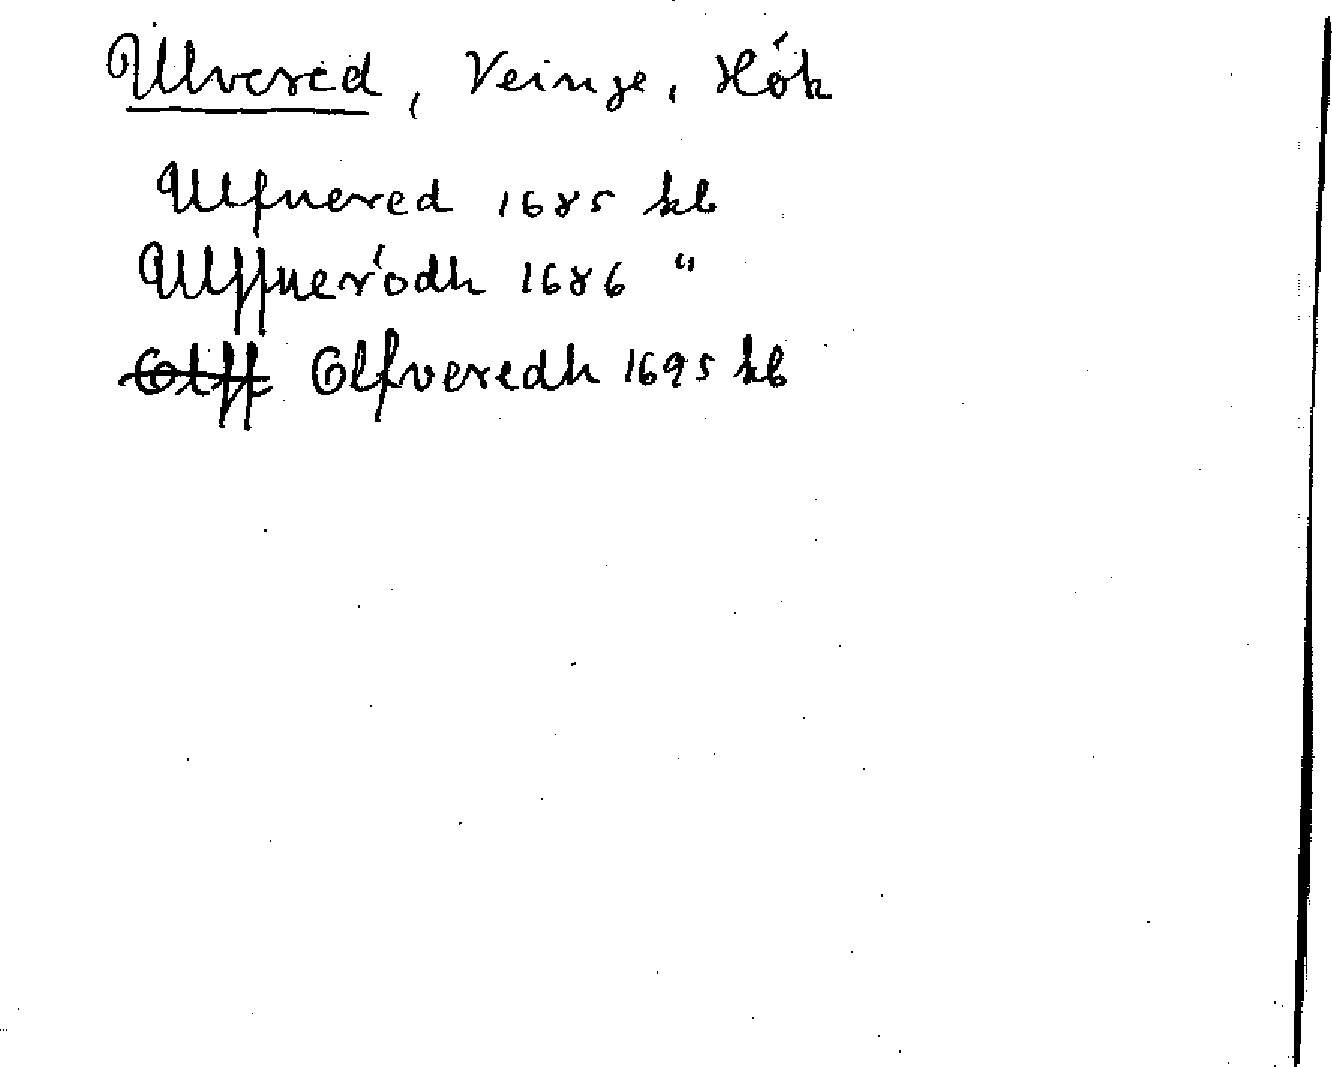 Ulvered, Veinge, Hök
Ulfuered 1685 kb
Ulffuerödh 1686 "
Olff Olfveredh 1695 kb